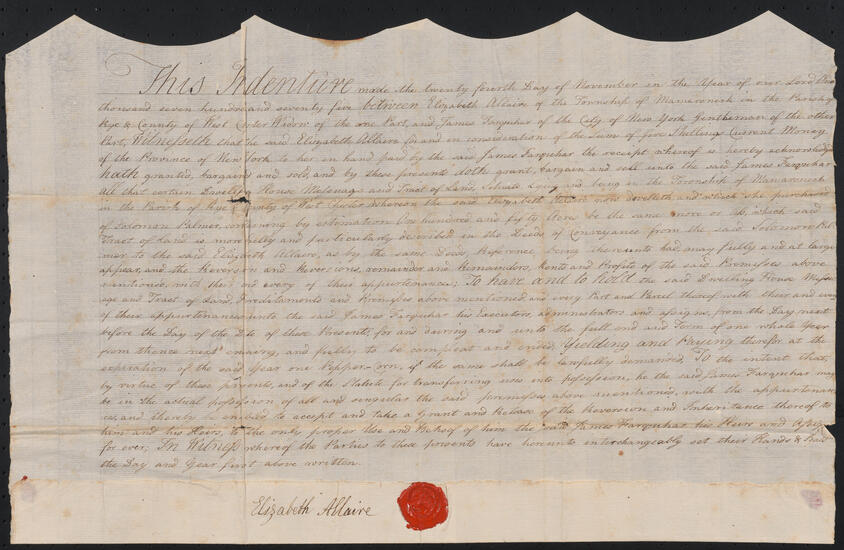 This Indenture made the twenty fourth Day of November in the Year of our Lord One
thousand seven hundred seventy five between Elizabeth Allaire of the Township of Mamaroneck in the Parish of
Rye & County of West Chester Widow of the one Part, and James Farquhar of the City of New York Gentleman of the other
Part, Witnesseth that he said Elizabeth Allaire for and in consideration of the Sum of five Shillings Current Money
of the Province of New York to her in hand paid by the said James Farquhar the receipt whereof is hereby acknowledged
hath granted, bargained and sold, and by these presents doth grant, bargain and sell unto the said James Farquhar
All that certain Dwelling House Messuage and Tract of Land, Situate Lying and being in the Township of Mamaroneck
in the Parish of Rye County of West Chester whereon the said Elizabeth now dwelleth and which she purchased
of Solomon Palmer, containing by estimation One hundred and fifty Acres be the same more or less, which said
Tract of Land is more fully and particularly described in the Deeds of Conveyance from the said Solomon Pal-
mer to the said Elizabeth Allaire, as by the same Deeds, Reference being thereunto had may fully and at large
appear, and the Reversion and Reversions, remainder and Remainders, Rents and Profits of the said Premisses above
mentioned, with their and every of their appurtenances; To have and to hold the said Dwelling House Messu-
age and Tract of Land, Herditaments and Premisses above mentioned, and every Part and Parcel thereof, with their and every
of their appurtenances unto the said James Farquhar his Executors, administrators and assigns, from the Day next
before the Day of the Date of these Present, for and during and unto the full end and Term of one whole Year
from thence next ensuing, and fully to be compleat and ended, Yielding and Paying therefor at the
expiration of the said Year one Pepper Corn, if the same shall be lawfully demanded, To the intent that,
by virtue of these presents, and of the Statute for transferring uses into possession, he the said James Farquhar may
be in the actual possession of all and singular the said premisses above mentioned, with the appurtenan-
ces, and thereby enabled to accept and take a Grant and Release of the Reversion and Inheritance thereof to
him and his Heirs, to the only proper Use and Behoof of him the said James Farquhar his Heirs and Assigns
for ever; In Witness whereof the Parties to these presents have hereunto interchangeably set their Hands & Seals
the Day and Year first above written.
Elizabeth Allaire